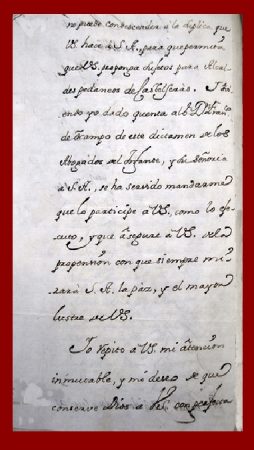 no puede condescender à la súplica que
VS. hace à S. A. para que permita
que VS. proponga sujetos para Alcal
des pedaneos de Castelserás. Y ha
viendo yo dado cuenta al Sr. D.
de Ocampo de este dictamen de los
Abogados del Infante, y su Señoria
à S. A., se ha servido mandarme
que lo participe à VS. como lo efe
tuo, y que asegure à VS. del
propension con que siempre mi
rará S. A. la paz, y el mayor
lustre de VS.
Yo repito à VS. mi atencion
inmutable, y mi deseo de que
conserve Dios à VS. con perfecta